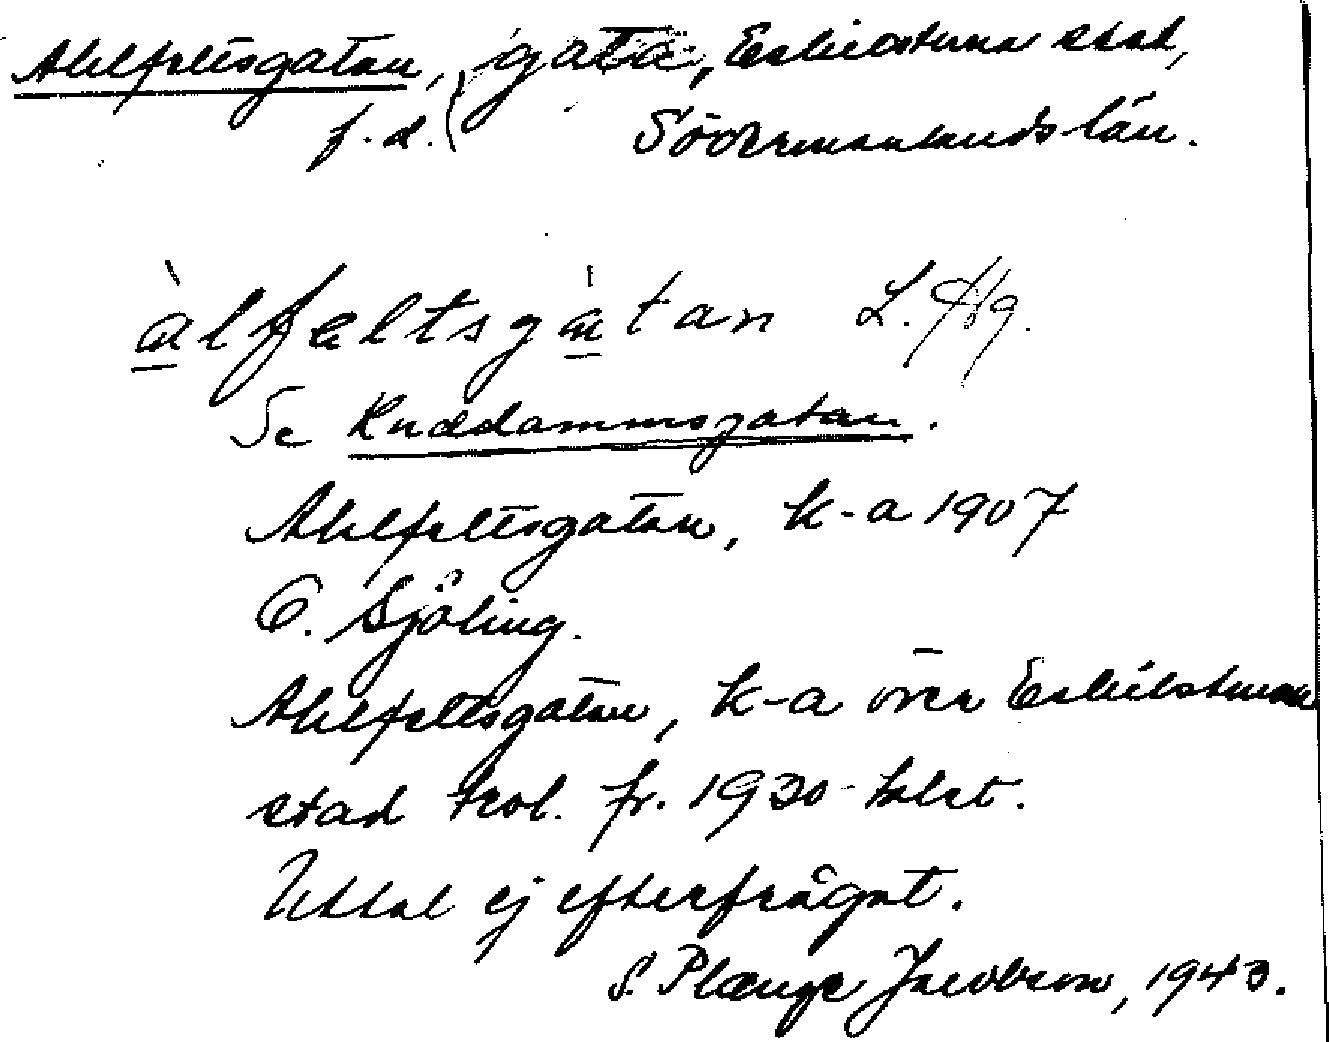 Ahlfeltsgatan, gata, Eskilstuna stad,
f.d. Södermanlands län.
àlfæltsgàtan L. Hg.
Se Kuddammsgatan.
Ahlfeltsgatan, k-a 1907
C. Sjöling.
Ahlfeltsgatan, k-a över Eskilstuna
stad trol. fr. 1930-talet.
Uttal ej efterfrågat.
S. Plænge Jacobson, 1943.